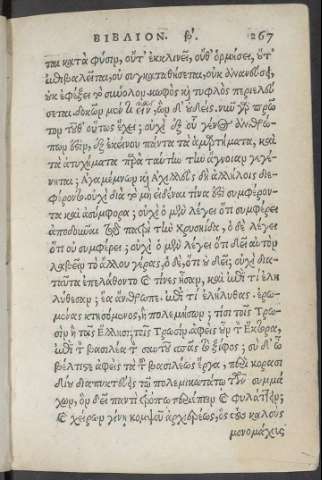 ΒΙΒΛΙΟΝ. β'. 267
ται κατὰ φύσιν, οὔτ' ἐκκλινεῖ, οὔθ' ὁρμήσει, οὔτ'
ἐπιβαλεῖται, οὐ συγκαταθήσεται, οὐκ ἀνανεύσει,
οὐκ ἐφέξει τὸ σύνολον. κωφὸς καὶ τυφλὸς περιελεύ
σεται. δοκῶν μέν τι εἶναι, ὢν δ' οὐδείς. νῦν πρῶ
τον τοῦθ' οὕτως ἔχει; οὐχὶ ἐξ οὗ γένος ἀνθρώ-
πων ἐστίν, ἐξ ἐκείνου πάντα τὰ ἁμαρτήματα, καὶ
τὰ ἀτυχήματα παρὰ ταύτην τὴν ἄγνοιαν γεγέ-
νηται; Ἀγαμέμνων καὶ Ἀχιλλεὺς διὰ τί ἀλλήλοις διε-
φέροντο; οὐχὶ διὰ τὸ μὴ εἰδέναι τίνα ἐστὶ συμφέρον-
τα καὶ ἀσύμφορα; οὐχὶ ὁ μὲν λέγει ὅτι συμφέρει
ἀποδοῦναι τῷ πατρὶ τὴν Χρυσηίδα, ὁ δὲ λέγει
ὅτι οὐ συμφέρει; οὐχὶ ὁ μὲν λέγει ὅτι δεῖ αὐτὸν
λαβεῖν τὸ ἄλλου γέρας, ὁ δέ, ὅτι οὐ δεῖ; οὐχὶ διὰ
ταῦτα ἐπελάθοντο καὶ τίνες ἦσαν, καὶ ἐπὶ τί ἐλη
λύθεσαν; ἔα ἄνθρωπε. ἐπὶ τί ἐλήλυθας. ἐρω-
μένας κτησόμενος, ἢ πολεμήσων; τίσι; τοῖς Τρω-
σὶν ἢ τοῖς Ἕλλησι; τοῖς Τρωσίν. ἀφεὶς οὖν τὸν Ἕκτορα,
ἐπὶ τὸν βασιλέα τὸν σαυτοῦ σπᾷς τὸ ξίφος; σὺ δ' ὦ
βέλτιστε ἀφεὶς τὰ τοῦ βασιλέως ἔργα, περὶ κορασι
δίου διαπυκτεύεις τῷ πολεμικωτάτῳ τῶν συμμά
χων, ὃν δεῖ παντὶ τρόπῳ περιέπειν καὶ φυλάττειν;
καὶ χείρων γίνῃ κομψοῦ ἀρχιερέως, ὃς τοὺς καλοὺς
μονομάχους